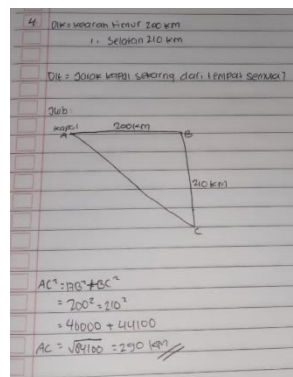 4. Dik = kearah timur 200 km
Selatan 210 km
Dit = Jarak kapal sekarang dari tempat semula?
Jwb:
kapal
A 200km B
210 km
C
AC² = AB² + BC²
= 200² = 210²
= 40000 + 44100
AC = √84100 = 290 km